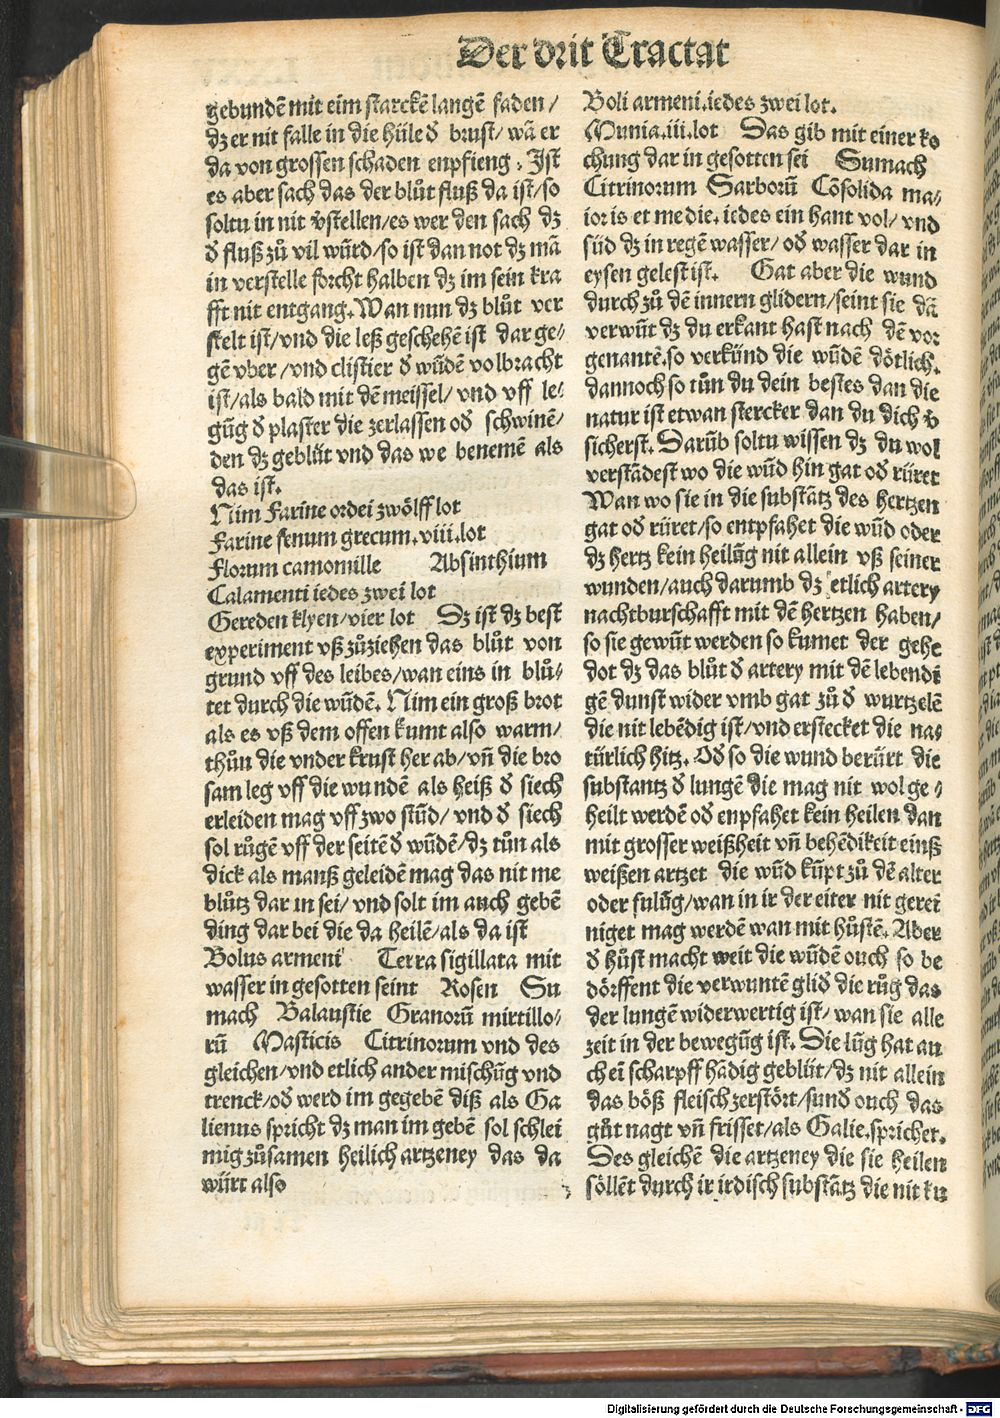 Der drit Tractat
gebundē mit eim starckē langē faden/
dz er nit falle in die hüle d̄ brust/ wā er
da von grossen schaden enpfieng. Ist
es aber sach das der blůt fluß da ist/so
soltu in nit v̄stellen/es wer den sach dz
d̄ fluß zů vil würd/so ist dan not dz mā
in verstelle forcht halben dz im sein kra
fft nit entgang. Wan nun dz blůt ver
stelt ist/vnd die leß geschehē ist dar ge/
gē vber/vnd clistier d̄ wūdē volbracht
ist/als bald mit dē meissel/ vnd vff le/
gūg d̄ plaster die zerlassen od̄ schwinē/
den dz geblüt vnd das we benemē als
das ist.
Nim Farine ordei zwölff lot
Farine fenum grecum.viii.lot
Florum camomille Absinthium
Calamenti iedes zwei lot
Gereden klyen/vier lot Dz ist dz best
experiment vß zůziehen das blůt von
grund vff des leibes/wan eins in blů/
tet durch die wūdē. Nim ein groß brot
als es vß dem offen kumt also warm/
thůn die vnder krust her ab/vn̄ die bro
sam leg vff die wundē als heiß d̄ siech
erleiden mag vff zwo stūd/ vnd d̄ siech
sol růgē vff der seitē d̄ wūdē/dz tůn als
dick als manß geleidē mag das nit me
blůtz dar in sei/ vnd solt im auch gebē
ding dar bei die da heilē/als da ist
Bolus armeni Terra sigillata mit
wasser in gesotten seint Rosen Su
mach Balaustie Granorū mirtillo/
rū Masticis Citrinorum vnd des
gleichen/vnd etlich ander mischūg vnd
trenck/od̄ werd im gegebē diß als Ga
lienus spricht dz man im gebē sol schlei
mig zůsamen heilich artzeney das da
würt also
Boli armeni.iedes zwei lot.
Munia.iii.lot Das gib mit einer ko
chung dar in gesotten sei Sumach
Citrinorum Sarborū Cōsolida ma/
ioris et medie. iedes ein hant vol/ vnd
süd dz in regē wasser/ od̄ wasser dar in
eysen gelest ist. Gat aber die wund
durch zů dē innern glidern/seint sie dā
verwūt dz du erkant hast nach dē vor
genantē.so verkünd die wūdē dötlich.
dannoch so tůn du dein bestes dan die
natur ist etwan stercker dan du dich v̄
sicherst. Darūb soltu wissen dz du wol
verstādest wo die wūd hin gat od̄ rüret
Wan wo sie in die substātz des hertzen
gat od̄ rüret/so entpfahet die wūd oder
dz hertz kein heilūg nit allein vß seiner
wunden/auch darumb dz etlich artery
nachtburschafft mit dē hertzen haben/
so sie gewūt werden so kumet der gehe
dot dz das blůt d̄ artery mit dē lebendi
gē dunst wider vmb gat zů d̄ wurtzelē
die nit lebēdig ist/vnd erstecket die na/
türlich hitz. Od̄ so die wund berürt die
substantz d̄ lungē die mag nit wol ge/
heilt werdē od̄ enpfahet kein heilen dan
mit grosser weißheit vn̄ behēdikeit einß
weißen artzet die wūd kūpt zů dē alter
oder fulūg/wan in ir der eiter nit gerei
niget mag werdē wan mit hůstē. Aber
d̄ hůst macht weit die wūdē ouch so be
dörffent die verwuntē glid̄ die růg das
der lungē widerwertig ist/ wan sie alle
zeit in der bewegūg ist. Die lūg hat au
ch ei scharpff hādig geblüt/dz nit allein
das böß fleisch zerstört/sund̄ ouch das
gůt nagt vn̄ frisset/als Galie.sprichet.
Des gleichē die artzeney die sie heilen
söllēt durch ir irdisch substātz die nit ku
Digitalisierung gefördert durch die Deutsche Forschungsgemeinschaft - DFG